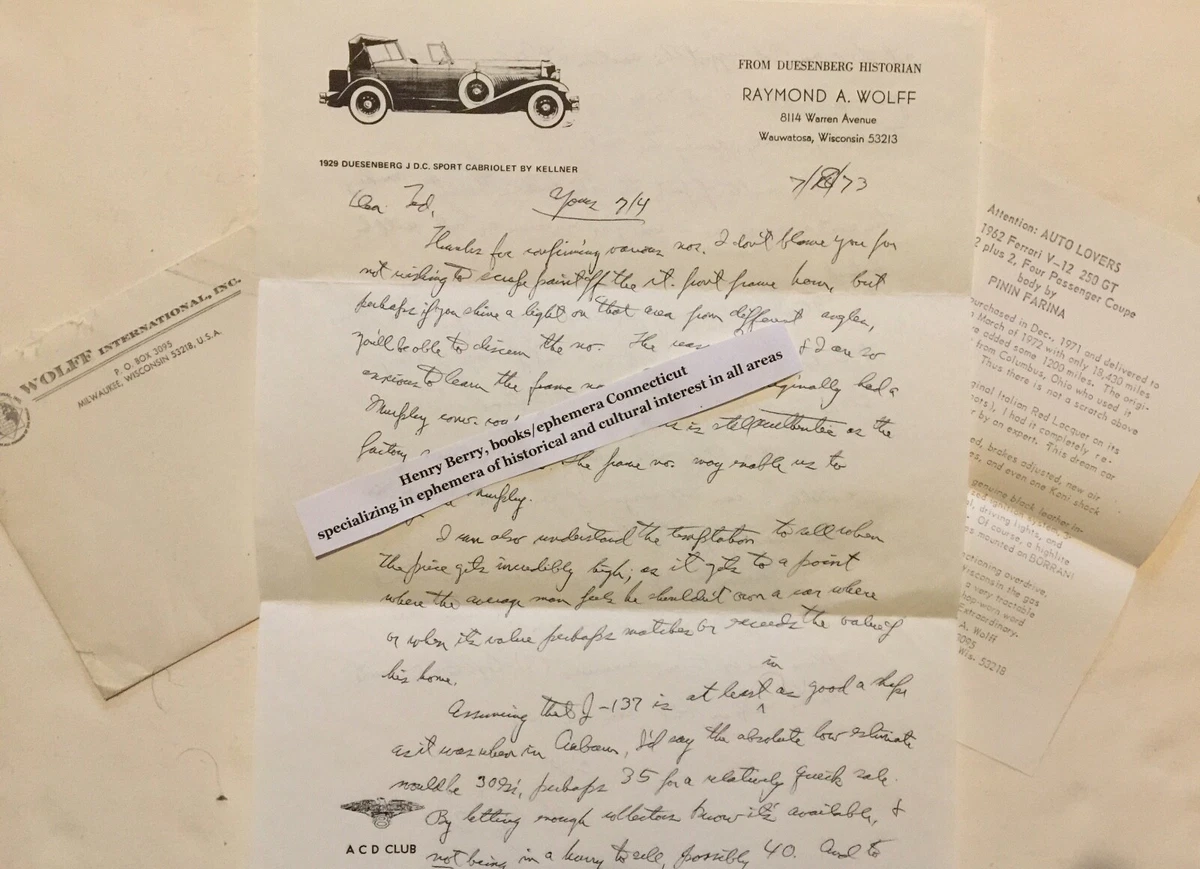 WOLFF INTERNATIONAL, INC.
P. O. BOX 3095
MILWAUKEE, WISCONSIN 53218, U.S.A.
FROM DUESENBERG HISTORIAN
RAYMOND A. WOLFF
8114 Warren Avenue
Wauwatosa, Wisconsin 53213
1929 DUESENBERG J D.C. SPORT CABRIOLET BY KELLNER
7/ /73
Dear Ted, Yours 7/4
Thanks for confirming various nos. I don't blame you for
not wishing to scrape paint off the rt. front frame horn, but
perhaps if you shine a light on that area from different angles,
you'll be able to discern the no. The & I are so
anxious to learn the frame originally had a
Murphy is still authentic as the
factory The frame nos. may enable us to
Murphy.
I can also understand the temptation to sell when
the price gets incredibly high; as it gets to a point
where the average man feels he shouldn't own a car where
or when its value perhaps matches or exceeds the value of
his home.
Assuming that J-137 is at least in as good a shape
as it was when in Auburn, I'd say the absolute low estimate
would be 30, perhaps 35 for a relatively quick sale.
By letting enough collectors know it's available, &
not being in a hurry to sell, possibly 40. And to
A C D CLUB
Henry Berry, books/ephemera Connecticut
specializing in ephemera of historical and cultural interest in all areas
Attention: AUTO LOVERS
1962 Ferrari V-12 250 GT
2 plus 2, Four Passenger Coupe
body by
PININ FARINA
purchased in Dec. 1971 and delivered to
March of 1972 with only 18,430 miles
added some 1200 miles. The origi-
from Columbus, Ohio who used it
Thus there is not a scratch above
ginal Italian Red Lacquer on its
I had it completely re-
by an expert. This dream car
brakes adjusted, new air
and even one Koni shock
genuine black leather in-
driving lights, and
Of course, a highlite
mounted on BORRANI
overdrive,
Wisconsin the gas
a very tractable
shop-worn word
Extraordinary.
A. Wolff
3095
Wis. 53218